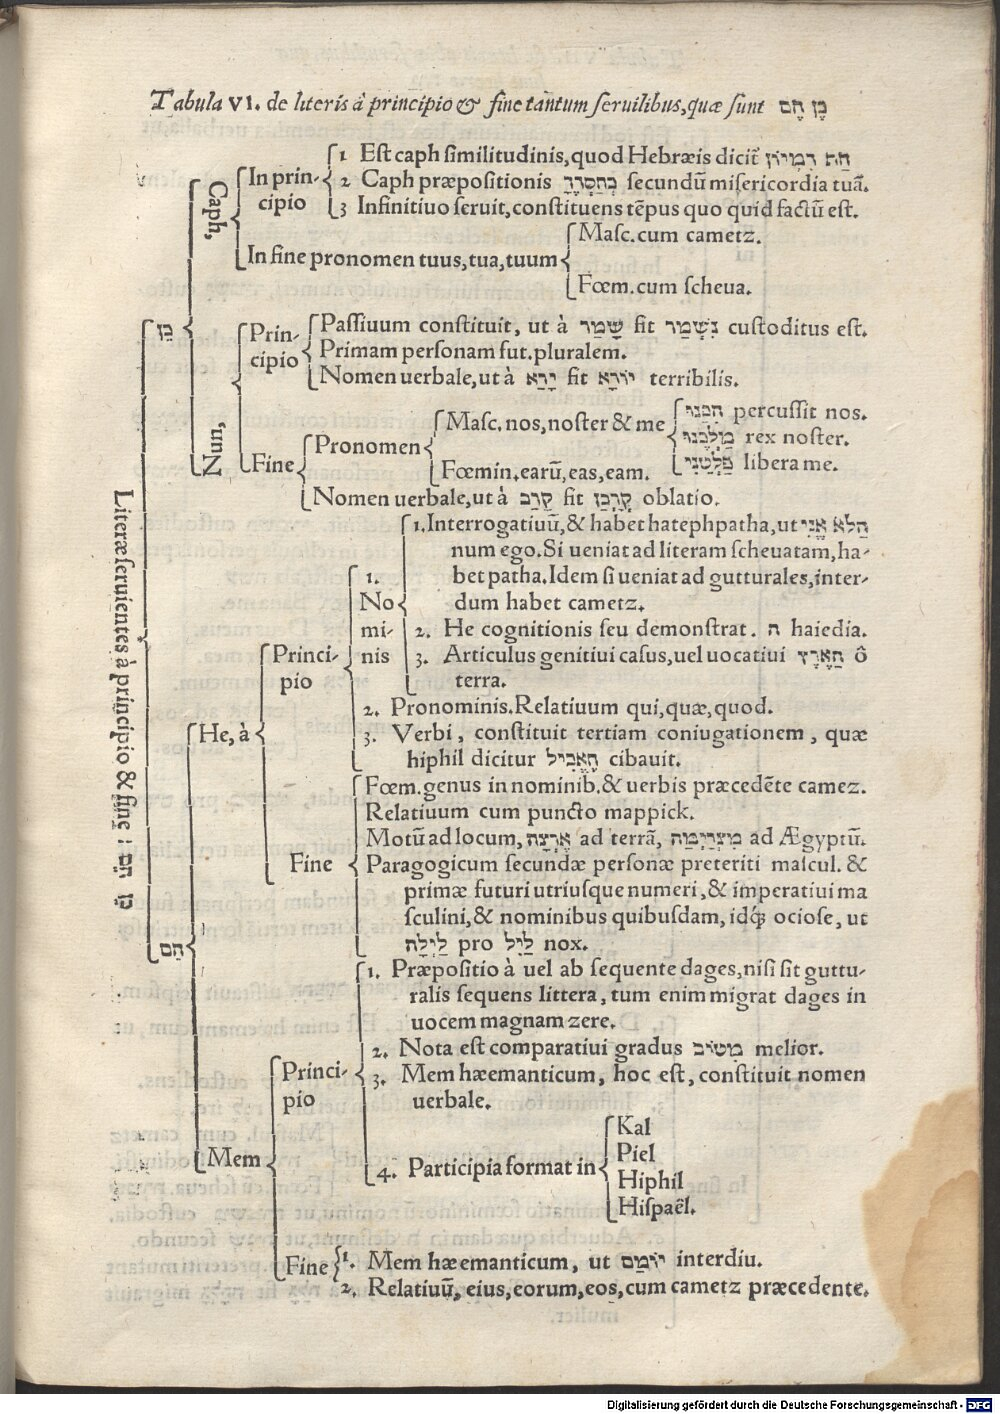 Tabula VI. de literis à principio & fine tantum seruilibus, quæ sunt כן הם
1 Est caph similitudinis, quod Hebræis dicit
In prin-
cipio
2 Caph præpositionis secundũ misericordiã tuã.
3 Infinitiuo seruit, constituens tẽpus quo quid factũ est.
Caph,
Masc. cum cametz.
In fine pronomen tuus, tua, tuum
Fœm. cum scheua.
כן
Prin-
cipio
Passiuum constituit, ut à שָׁמַר fit נִשְׁמַר custoditus est.
Primam personam fut. pluralem.
Nomen uerbale, ut à יָרֵא fit נוֹרָא terribilis.
Nun,
Masc. nos, noster & me
percussit nos.
rex noster.
libera me.
Fine
Pronomen
Fœmin. earũ, eas, eam.
Nomen uerbale, ut à קָרַב fit קָרְבָּן oblatio.
Literæ seruientes à principio & fine: הם כן
1. Interrogatiuũ, & habet hatephpatha, ut הֲלֹא אֲנִי
num ego. Si ueniat ad literam scheuatam, ha-
bet patha. Idem si ueniat ad gutturales, inter-
dum habet cametz.
1.
No
mi-
nis
2. He cognitionis seu demonstrat. ה haiedia.
3. Articulus genitiui casus, uel uocatiui הָאָרֶץ ô
terra.
Princi-
pio
2. Pronominis. Relatiuum qui, quæ, quod.
3. Verbi, constituit tertiam coniugationem, quæ
hiphil dicitur הֶאֱכִיל cibauit.
He, à
Fœm. genus in nominib. & uerbis præcedẽte camez.
Relatiuum cum puncto mappick.
Motũ ad locum, אַרְצָה ad terrã, מִצְרַיְמָה ad Ægyptũ.
Fine
Paragogicum secundæ personæ preteriti mascul. &
primæ futuri utriusque numeri, & imperatiui ma
sculini, & nominibus quibusdam, idq́; ociose, ut
לַיְלָה pro לַיִל nox.
הם
1. Præpositio à uel ab sequente dages, nisi sit guttu-
ralis sequens littera, tum enim migrat dages in
uocem magnam zere.
2. Nota est comparatiui gradus מִטּוֹב melior.
Princi-
pio
3. Mem hæemanticum, hoc est, constituit nomen
uerbale.
Mem
4. Participia format in
Kal
Piel
Hiphil
Hispaël.
Fine
1. Mem hæemanticum, ut יוֹמָם interdiu.
2. Relatiuũ, eius, eorum, eos, cum cametz præcedente.
Digitalisierung gefördert durch die Deutsche Forschungsgemeinschaft - DFG